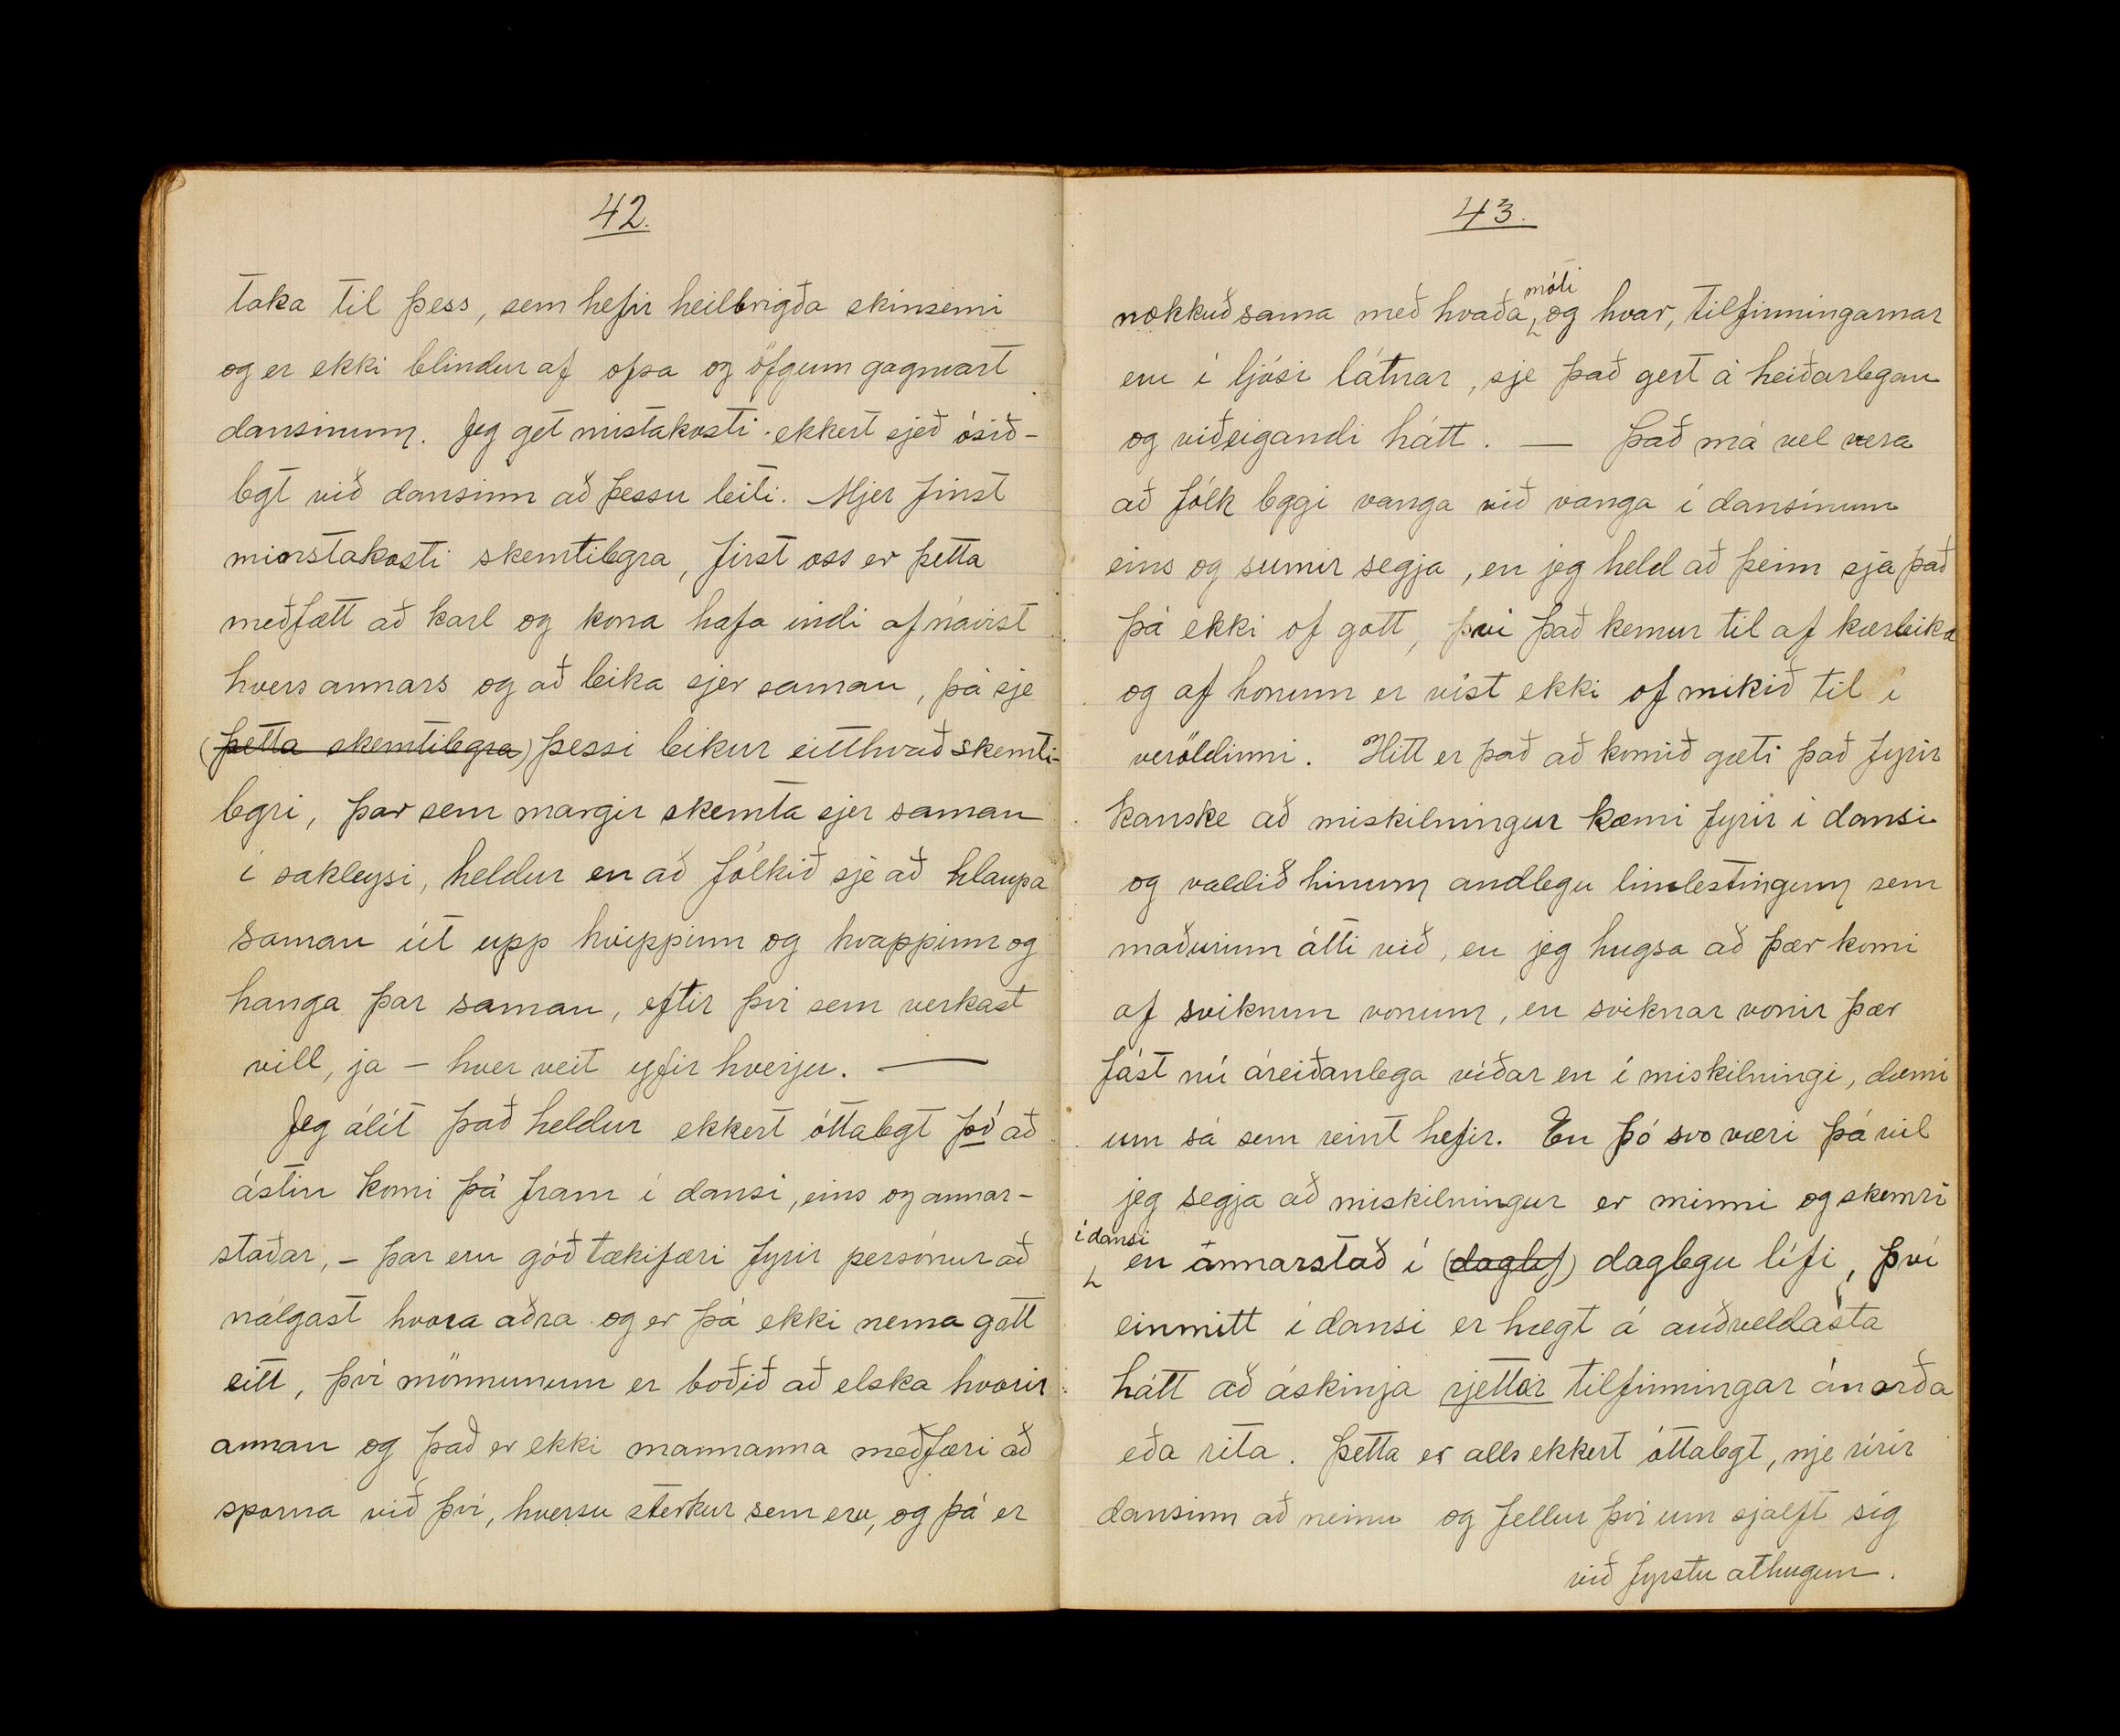 42.
taka til þess, sem hefir heilbrigða skinsemi
og er ekki blindur af ofsa og öfgum gagnvart
dansinum. Jeg get mistakosti ekkert sjeð ósið-
legt við dansinn að þessu leiti. Mjer finst
minstakosti skemtilegra, first oss er þetta
meðfætt að karl og kona hafa indi af návist
hvers annars og að leika sjer saman, þá sje
(þetta skemtilegra) þessi leikur eitthvað skemti-
legri, þar sem margir skemta sjer saman
í sakleysi, heldur en að fólkið sje að hlaupa
saman út upp hvippinn og hvappinn og
hanga þar saman, eftir því sem verkast
vill, ja – hver veit yfir hverju. —
Jeg álít það heldur ekkert óttalegt þó að
ástin komi þá fram í dansi, eins og annar-
staðar, – þar eru góð tækifæri fyrir persónur að
nálgast hvora aðra og er þá ekki nema gott
eitt, því mönnunum er boðið að elska hvorir
annan og það er ekki mannanna meðfæri að
sporna við því, hversu sterkur sem eru, og þá er
43.
nokkuð sama með hvaða móti og hvar, tilfinningarnar
eru í ljósi látnar, sje það gert á heiðarlegan
og viðeigandi hátt. — Það má vel vera
að fólk leggi vanga við vanga í dansinum
eins og sumir segja, en jeg held að þeim sjá það
þá ekki of gott, því það kemur til af kærleika
og af honum er víst ekki of mikið til í
veröldinni. Hitt er það að komið gæti það fyrir
kanske að miskilningur kæmi fyrir í dansi
og valdið hinum andlegu limlestingum sem
maðurinn átti við, en jeg hugsa að þær komi
af sviknum vonum, en sviknar vonir þær
fást nú áreiðanlega víðar en í miskilningi, dæmi
um sá sem reint hefir. En þó svo væri þá vil
jeg segja að miskilningur er minni og skemri
í dansi en annarstað í (daglef) daglegu lífi, því
einmitt í dansi er hægt á auðveldasta
hátt að áskinja rjettar tilfinningar án orða
eða rita. Þetta er alls ekkert óttalegt, nje rírir
dansinn að neinu og fellur því um sjálft sig
við fyrstu athugun.